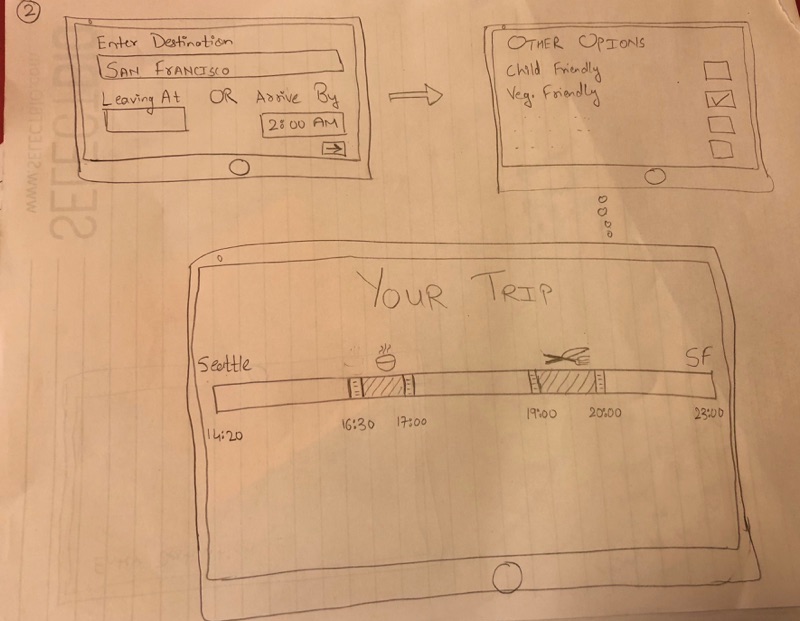 2
Enter Destination
SAN FRANCISCO
Leaving At OR Arrive By
OTHER OPIONS
Child Friendly
Veg. Friendly
YOUR TRIP
Seattle
SF
14:20
16:30
17:00
19:00
20:00
23:00